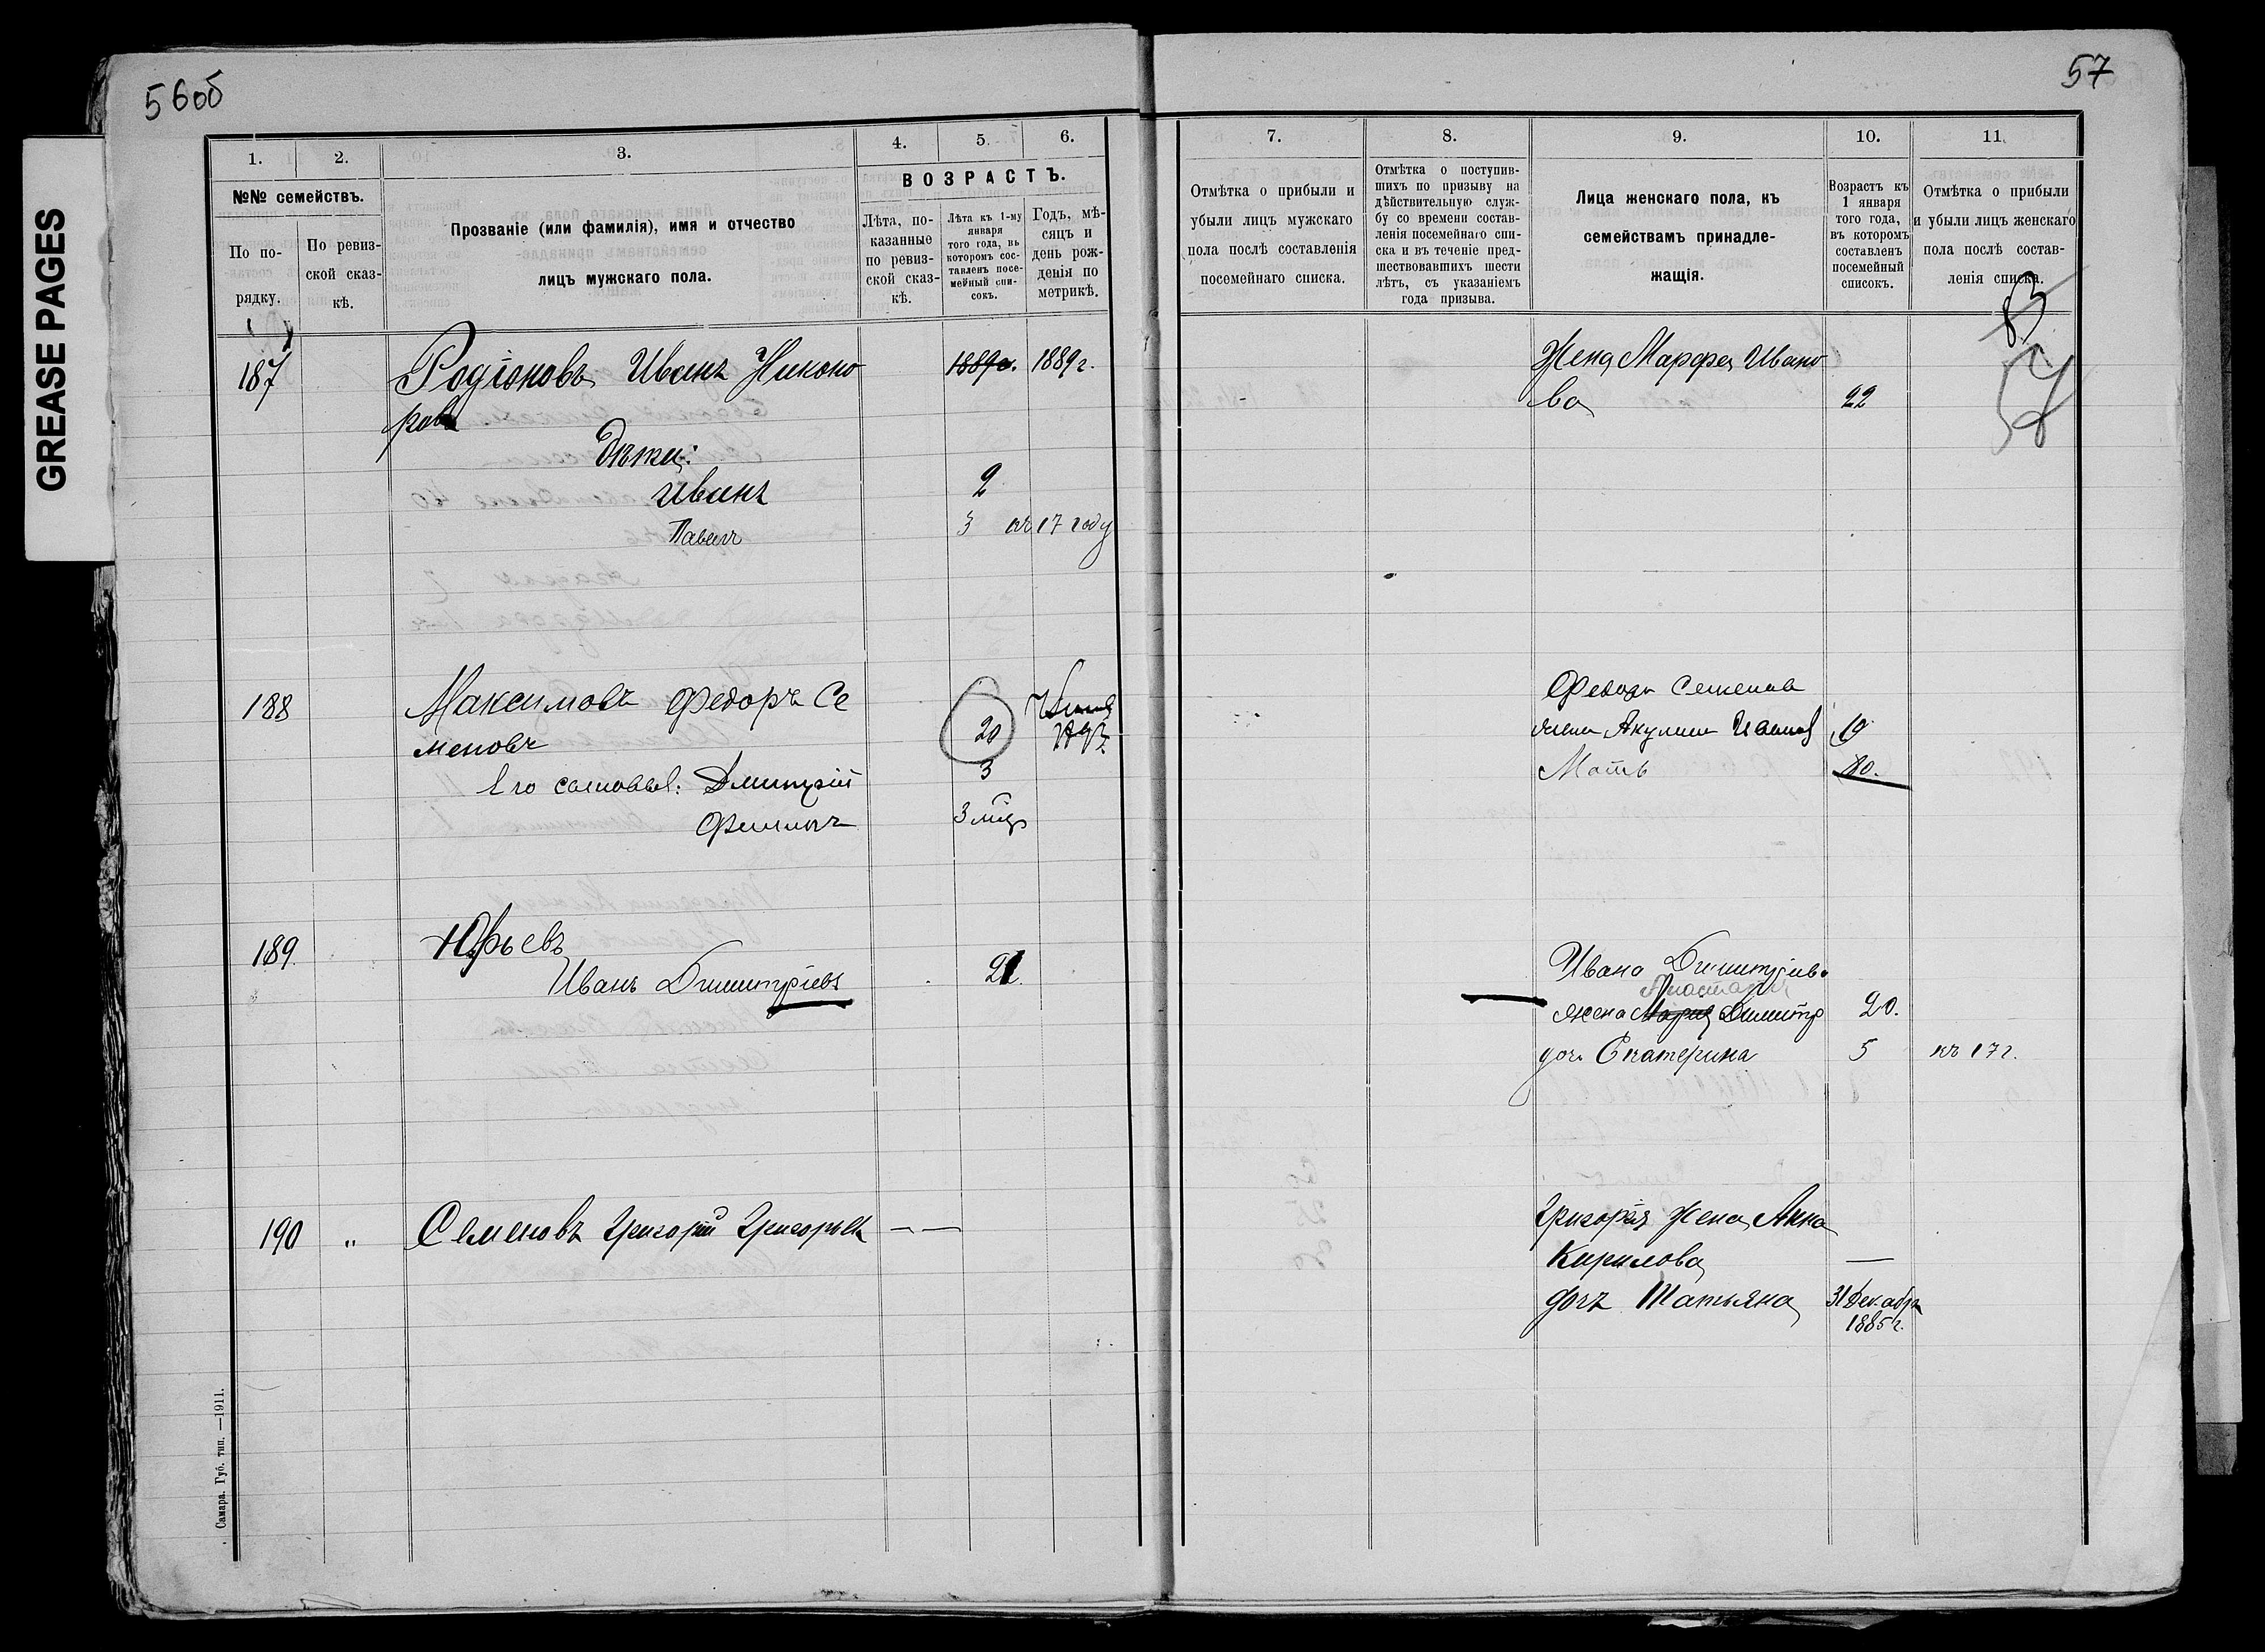 56об
57
GREASE PAGES
1.
2.
3.
4.
5.
6.
№№ семействъ.
По по-
рядку.
По ревиз-
ской сказ-
кѣ.
Прозваніе (или фамилія), имя и отчество
лицъ мужскаго пола.
ВОЗРАСТЪ.
Лѣта, по-
казанные
по ревиз-
ской сказ-
кѣ.
Лѣта къ 1-му
января
того года, въ
которомъ сос-
тавленъ посе-
мейный спи-
сокъ.
Годъ, мѣ-
сяцъ и
день рож-
денія по
метрикѣ.
187
Родіоновъ Иванъ Никоно
ровъ
1889г. 1889г.
Дѣти:
Иванъ 2
Павелъ 3 къ 17 году
188
Максимовъ Федоръ Се
меновъ
20
Его сыновья: Дмитрій 3
Филиппъ 3 мѣс
189.
Юрьевъ
Иванъ Димитріевъ 21
190 „ Семеновъ Григорій Григорьев — —
Самара. Губ. тип. —1911.
7.
8.
9.
10.
11.
Отмѣтка о прибыли и
убыли лицъ мужскаго
пола послѣ составленія
посемейнаго списка.
Отмѣтка о поступив-
шихъ по призыву на
дѣйствительную служ-
бу со времени состав-
ленія посемейнаго спи-
ска и въ теченіе пред-
шествовавшихъ шести
лѣтъ, съ указаніемъ
года призыва.
Лица женскаго пола, къ
семействамъ принадле-
жащія.
Возрастъ къ
1 января
того года,
въ которомъ
составленъ
посемейный
списокъ.
Отмѣтка о прибыли
и убыли лицъ женскаго
пола послѣ состав-
ленія списка.
83
57
Жена Марфа Ивано
ва 22
Федора Семенова
жена Акулина Иванов 19
Мать 80.
Ивана Димитріев.
Анастасія
жена Марія Димитр 20.
доч. Екатерина 5 къ 17г.
Григорія жена Анна
Кирилова —
дочь Татьяна 31 Декабря
1885г.